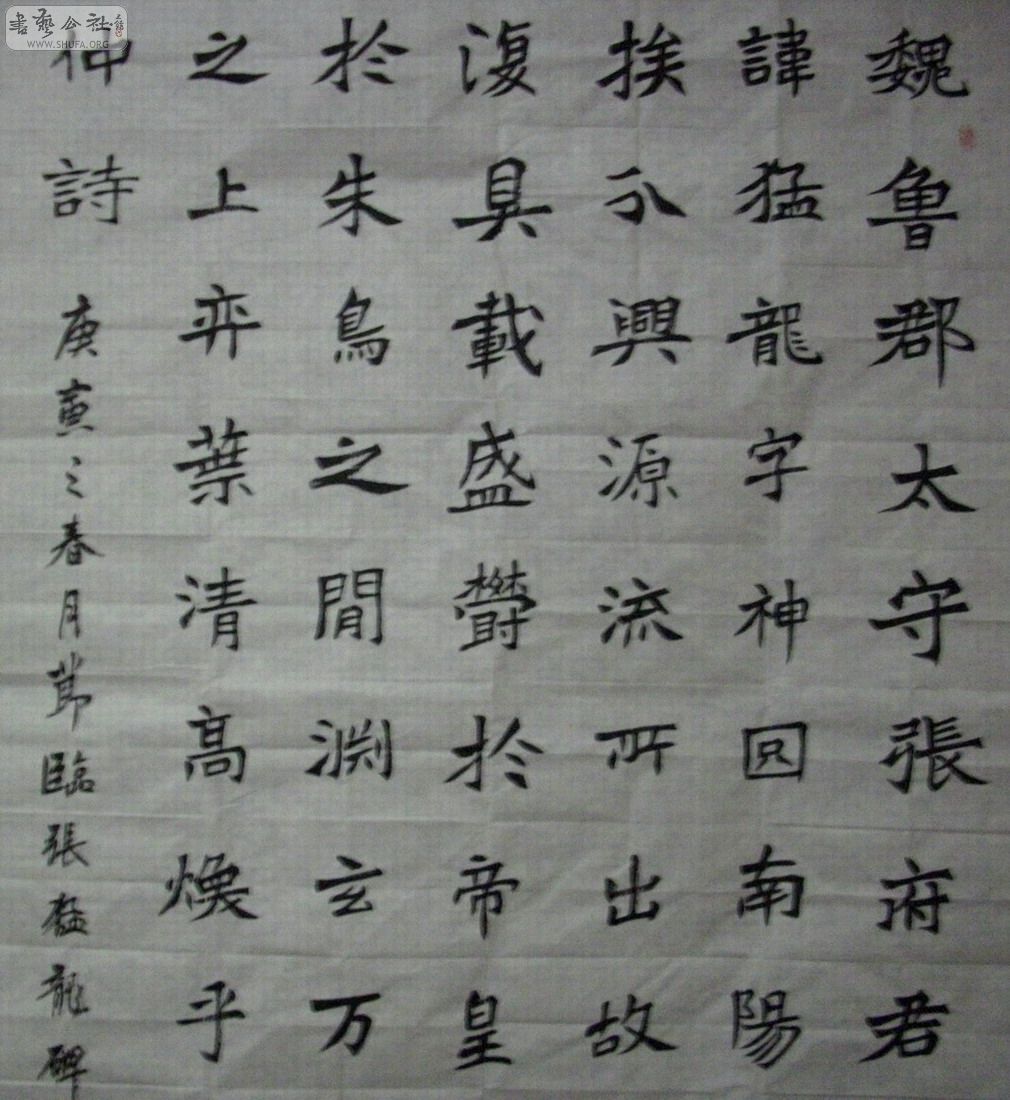 魏魯郡太守張府君
諱猛龍字神囧南陽
族分興源流所出故
復具載盛欝於帝皇
於朱鳥之閒淵玄万
之上弈葉清高煥乎
仲詩 庚寅之春月節臨張猛龍碑
書藝公社
WWW.SHUFA.ORG